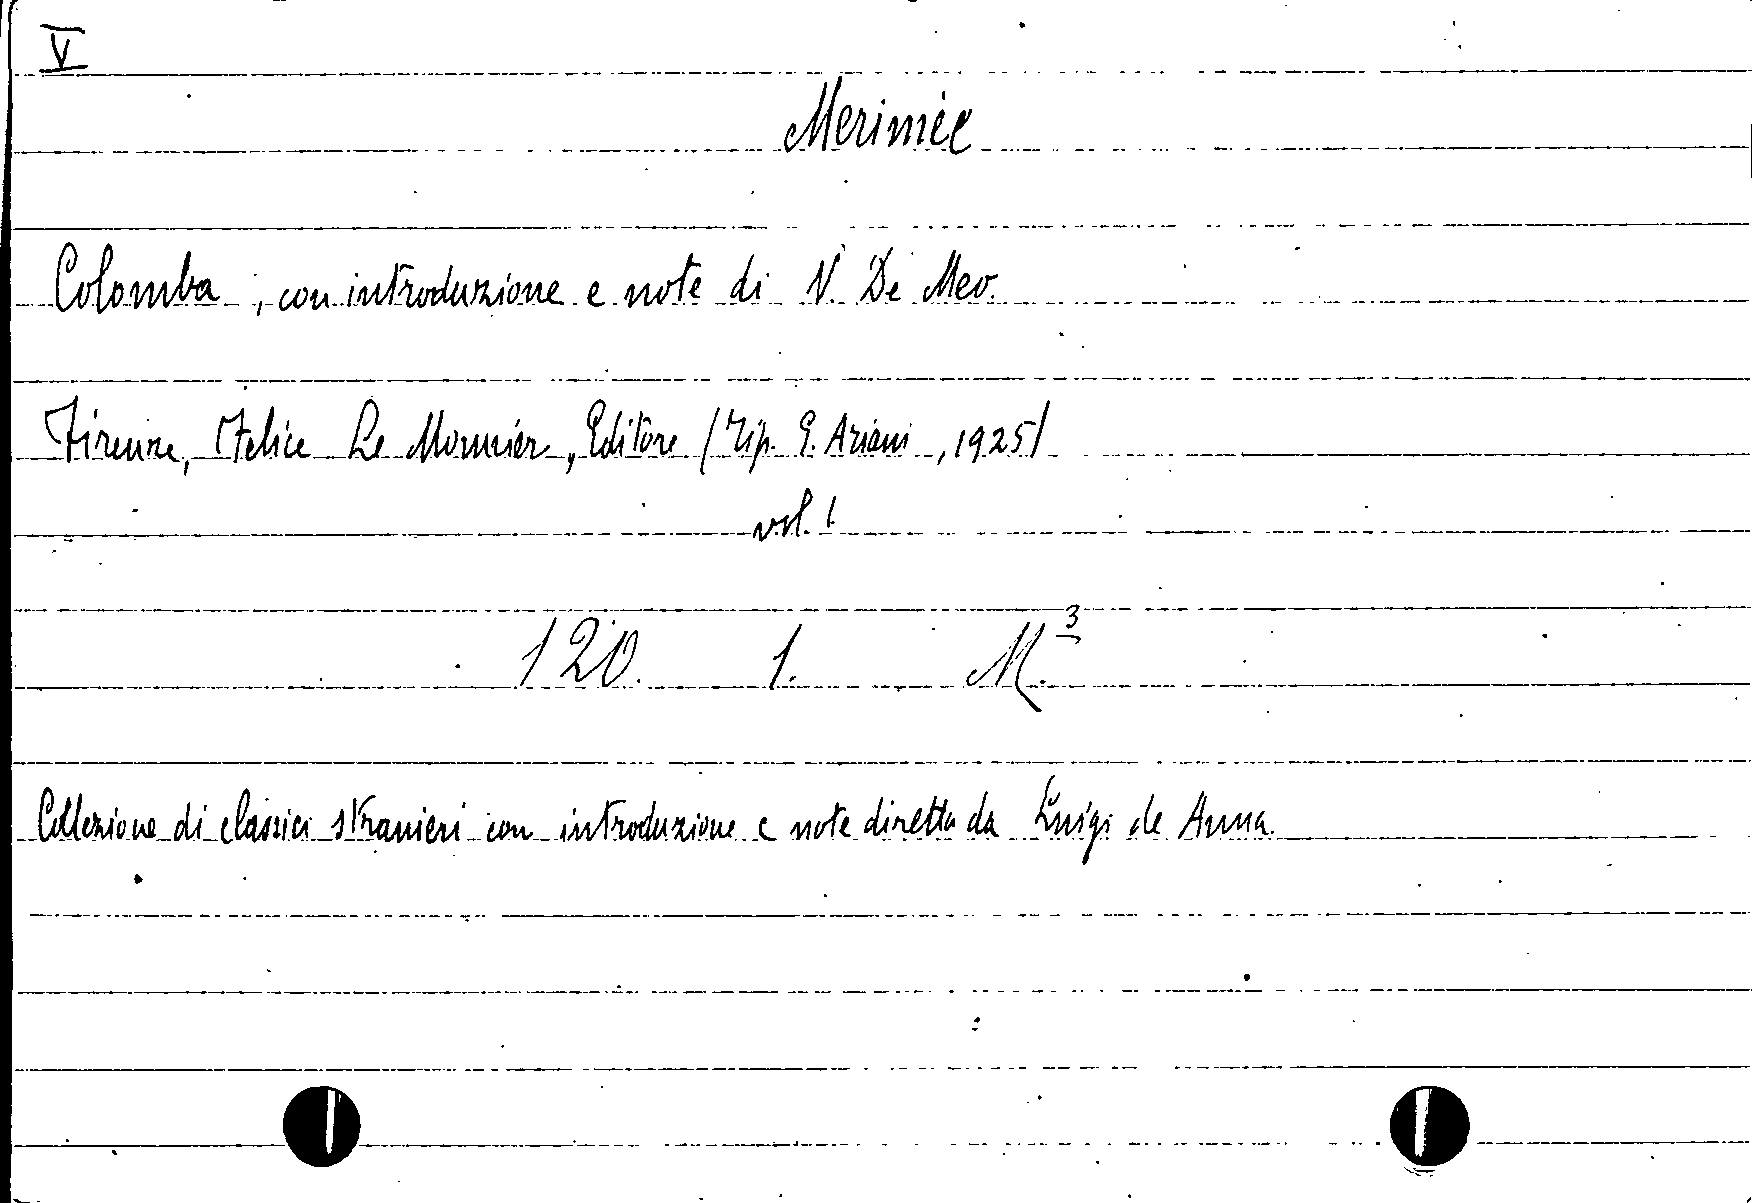 V
Merimée
Colomba, con introduzione e note di V. De Meo.
Firenze, Felice Le Monnier, Editore (Tip. E. Ariani, 1925)
vol. 1.
120. 1. M.3
Collezione di classici stranieri con introduzione e note diretta da Luigi de Anna.